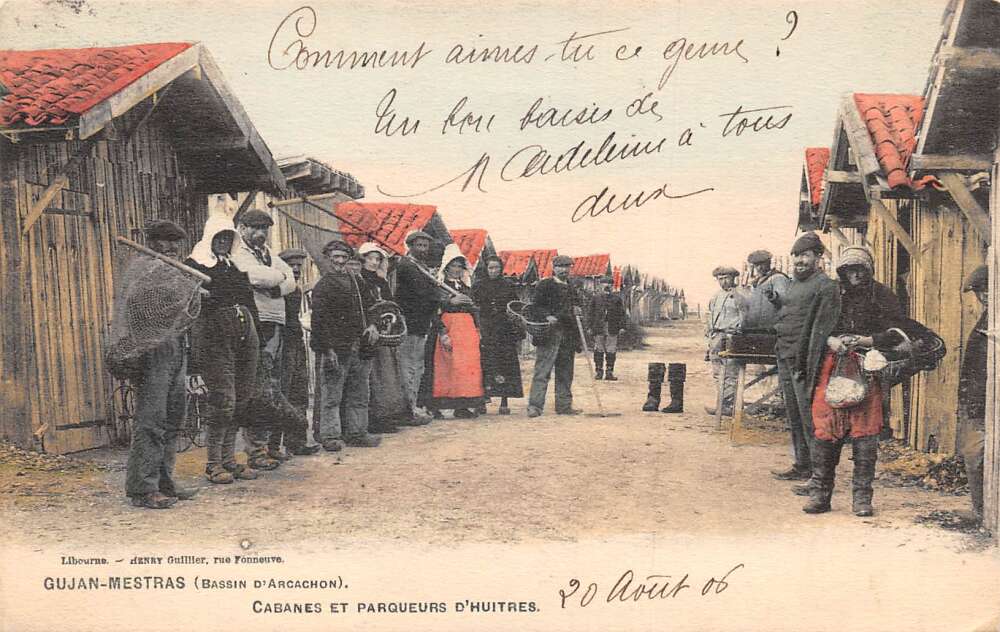 Comment aimes-tu ce genre ?
Un bon baisis de
Madeleine à tous
deux
Libourne. – HENRY Guillier, rue Fonneuve.
GUJAN-MESTRAS (BASSIN D'ARCACHON).
CABANES ET PARQUEURS D'HUITRES.
20 Août 06